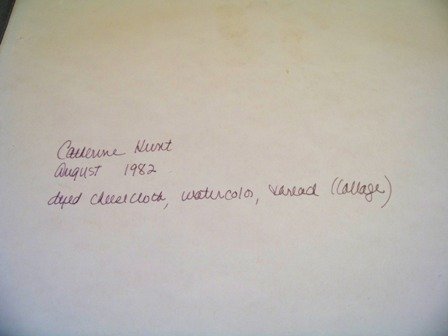 Catherine Hunt
August 1982
dyed cheesecloth, watercolor, thread (collage)